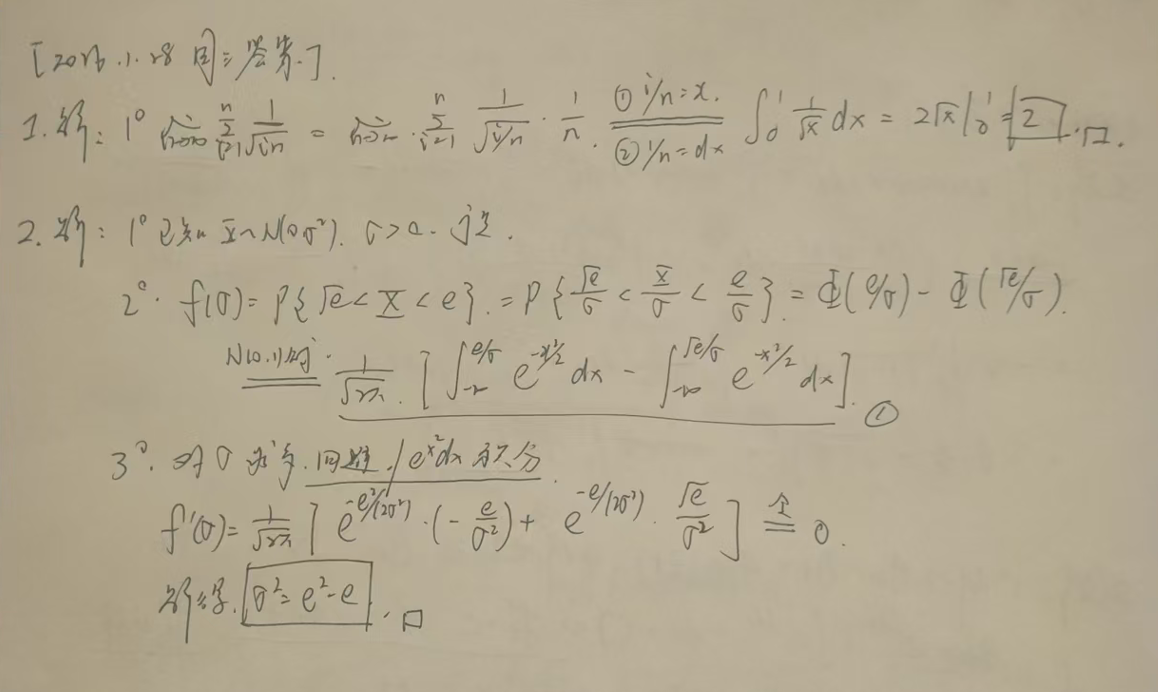 [2026.1.28 周三答案.].
1. 解: 1° lim_{n→∞} Σ_{i=1}^{n} 1/√(in) = lim_{n→∞} · Σ_{i=1}^{n} 1/√(i/n) · 1/n. ① i/n = x. ② 1/n = dx ∫_0^1 1/√x dx = 2√x |_0^1 = 2 . □.
2. 解: 1° 已知 X ~ N(0, σ²). σ > 0.
2°. f(σ) = P{√e < X < e}. = P{√e/σ < X/σ < e/σ}. = Φ(e/σ) - Φ(√e/σ).
N(0,1)时 = 1/√2π. [∫_{-∞}^{e/σ} e^{-x²/2} dx - ∫_{-∞}^{√e/σ} e^{-x²/2} dx]. ①
3°. 对 σ 求导. 回避 ∫e^{x²}dx 积分.
f'(σ) = 1/√2π [e^{-e²/(2σ²)} · (-e/σ²) + e^{-e/(2σ²)} · √e/σ²] 令= 0.
解得. σ² = e² - e . □